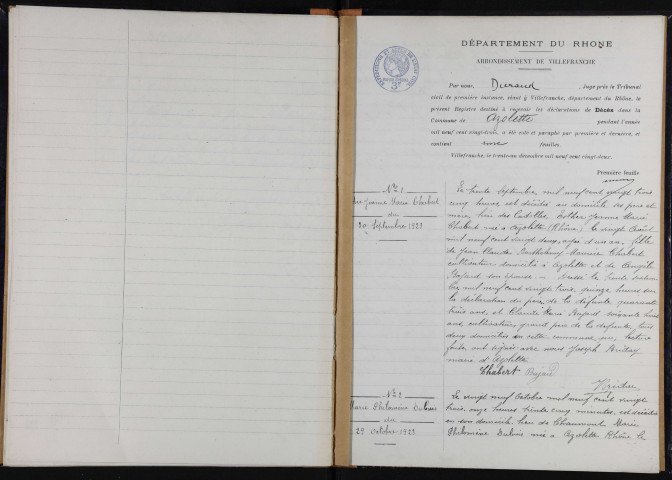 DÉPARTEMENT DU RHONE
ARRONDISSEMENT DE VILLEFRANCHE
Par nous, Durand, Juge près le Tribunal
civil de première instance, séant à Villefranche, département du Rhône, le
présent Registre destiné à recevoir les déclarations de Décès dans la
Commune de Azolette pendant l'année
mil neuf cent vingt-trois, a été coté et paraphé par première et dernière, et
contient feuilles
Villefranche, le trente-un décembre mil neuf cent vingt-deux.
Première feuille
N° 1
Jeanne Marie Chabert
du
30 Septembre 1923
Le trente Septembre, mil neuf cent vingt trois
cinq heures est décédée au domicile de ses père et
mère, lieu des Esther Jeanne Marie
Chabert née à Azolette (Rhône) le vingt
mil neuf cent vingt deux, âgée d'un an, fille
de Jean Claude Maurice Chabert
cultivateur domicilié à Azolette et de
Bajard son épouse — Dressé le trente Septem
bre mil neuf cent vingt trois, quinze heures sur
la déclaration du père de la défunte quarante
trois ans, et Marie Bajard soixante
ans cultivateur, grand père de la défunte, tous
deux domiciliés en cette commune qui, lecture
faite ont signé avec nous Joseph
maire d'Azolette
Chabert Bajard
N° 2
Marie Philomène Dubuis
du
29 octobre 1923
Le vingt neuf Octobre mil neuf cent vingt
trois, onze heures trente cinq minutes, est décédée
en son domicile lieu de Chaumont Marie
Philomène Dubuis née à Azolette Rhône le